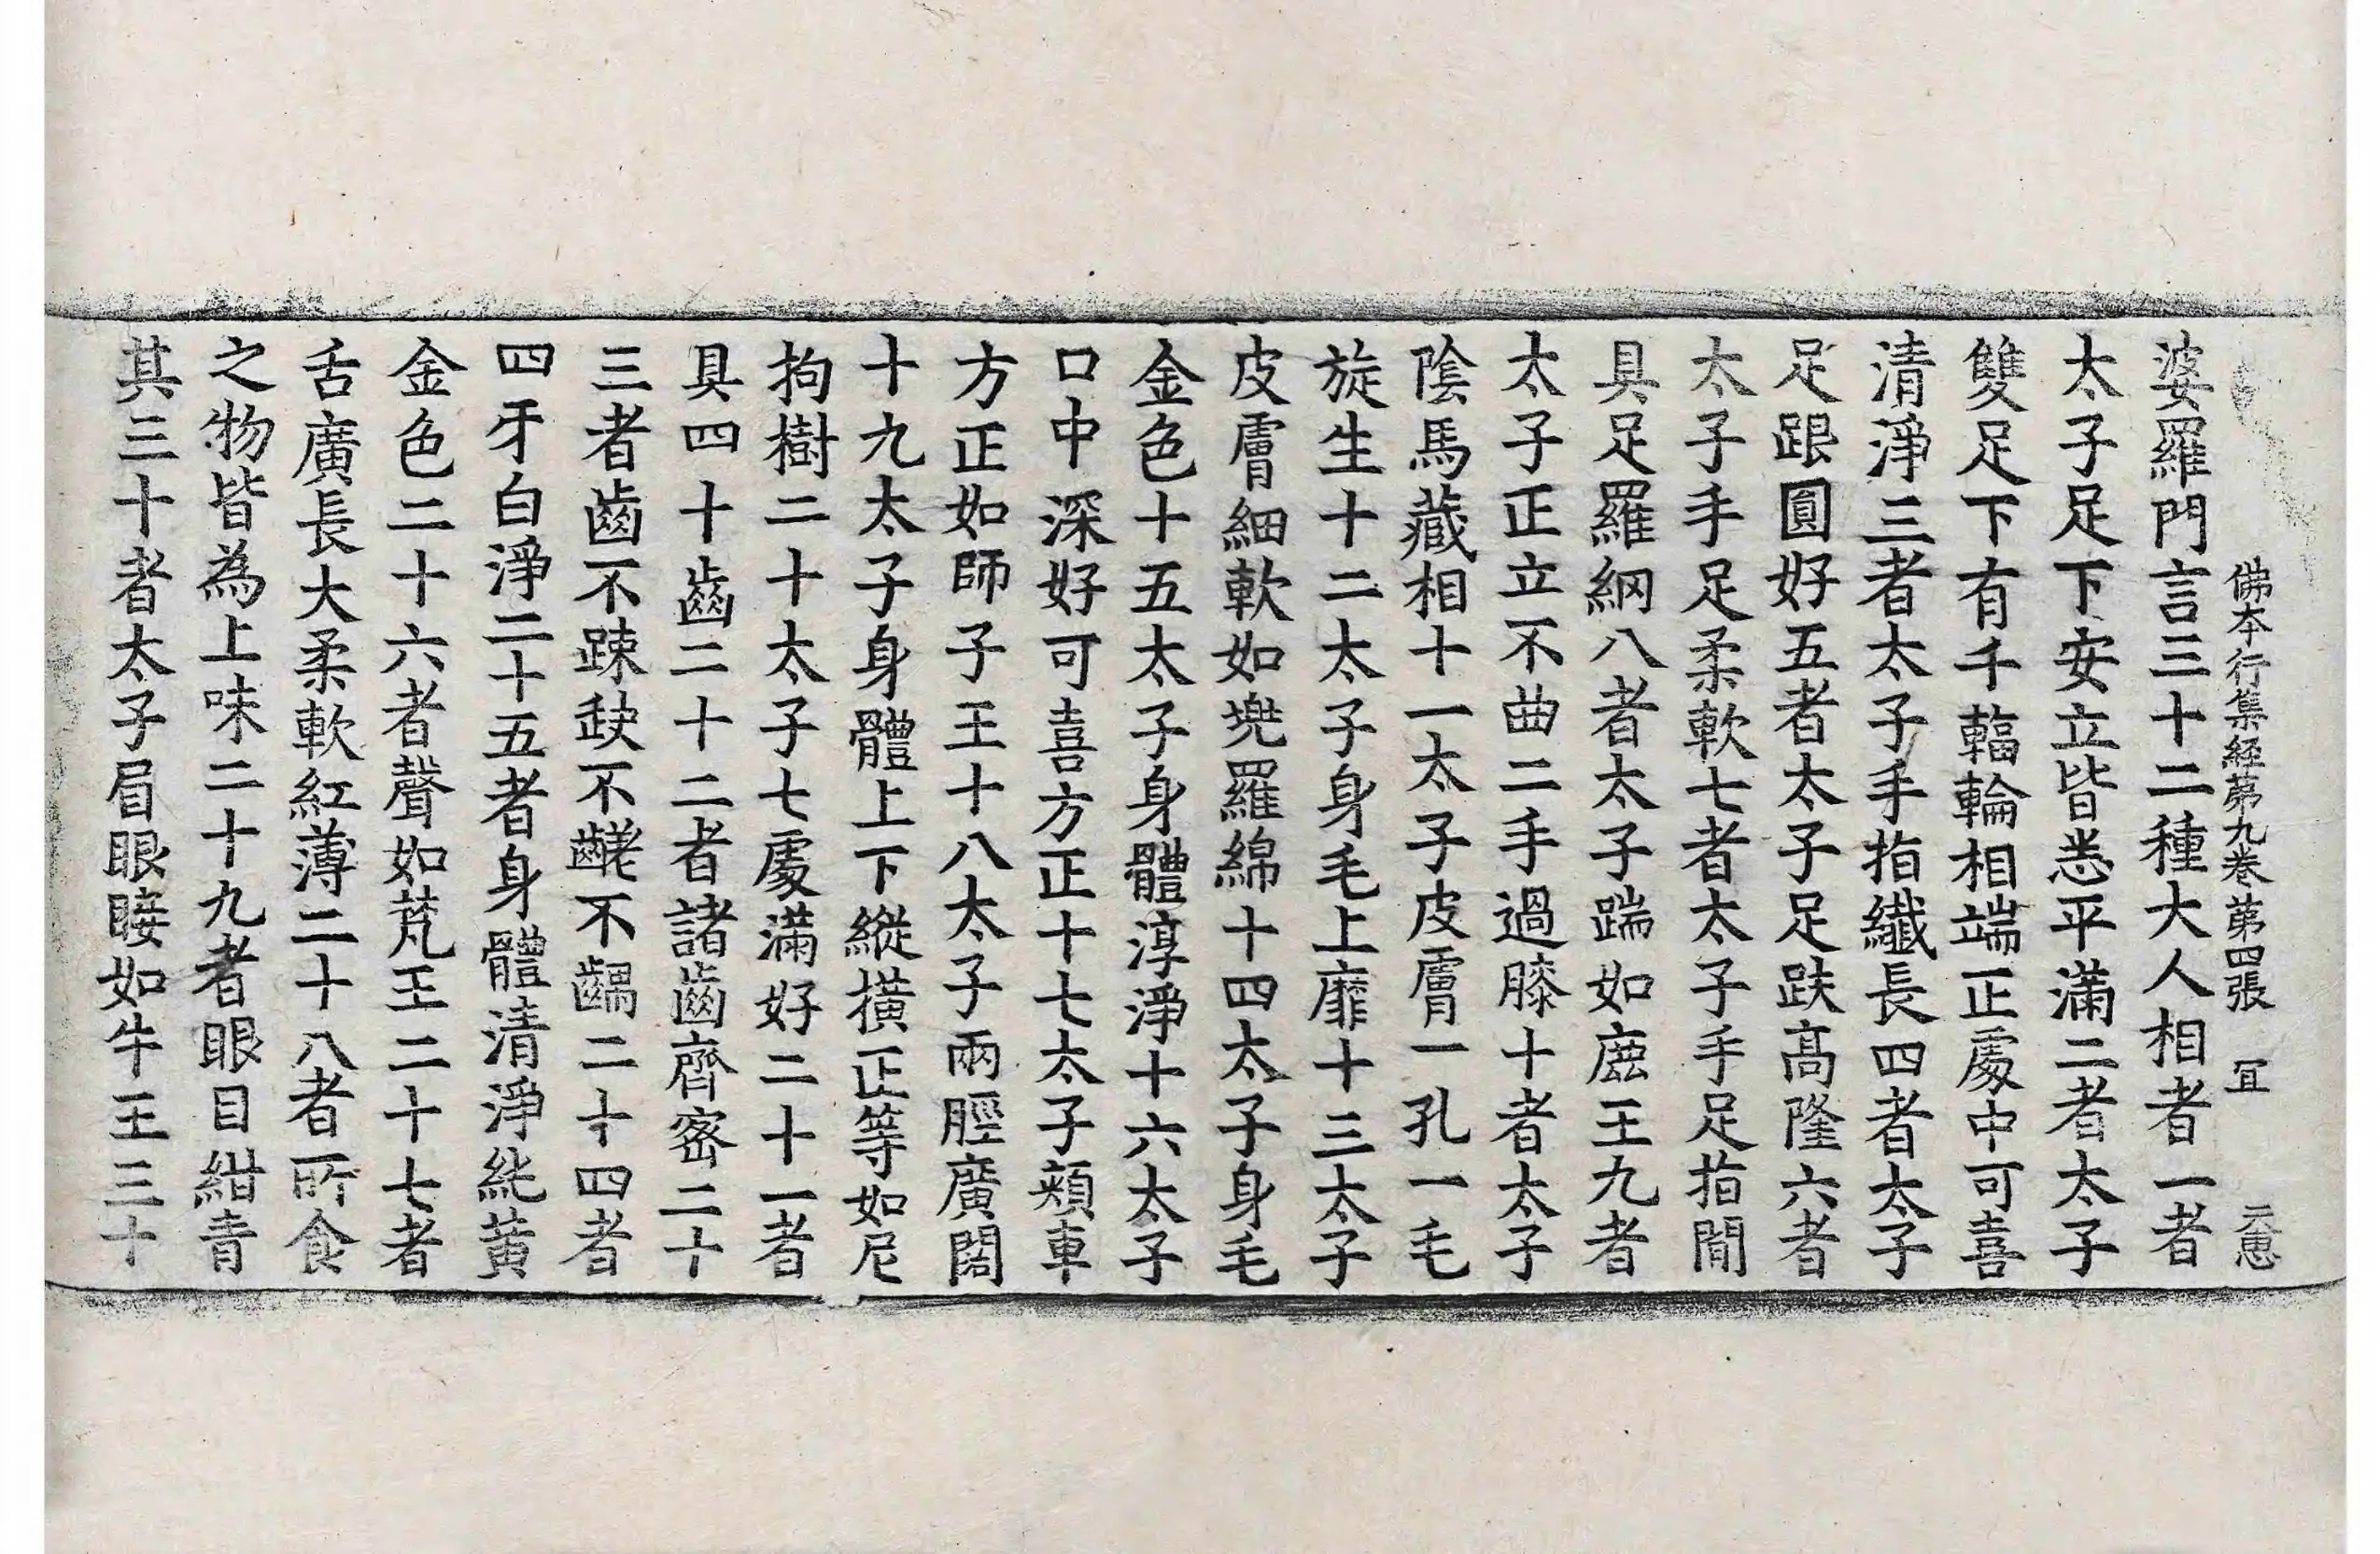 佛本行集經第九卷 第四張 冝 二惠
婆羅門言三十二種大人相者一者
太子足下安立皆悉平滿二者太子
雙足下有千輻輪相端正處中可喜
清淨三者太子手指纖長四者太子
足跟圓好五者太子足趺髙隆六者
太子手足柔軟七者太子手足指間
具足羅網八者太子踹如鹿王九者
太子正立不曲二手過膝十者太子
陰馬藏相十一太子皮膚一孔一毛
旋生十二太子身毛上靡十三太子
皮膚細軟如兠羅綿十四太子身毛
金色十五太子身體淳淨十六太子
口中深好可喜方正十七太子頰車
方正如師子王十八太子兩䏶廣闊
十九太子身體上下縱橫正等如尼
拘樹二十太子七處滿好二十一者
具四十齒二十二者諸齒齊密二十
三者齒不踈缺不齹不齵二十四者
四牙白淨二十五者身體清淨純黄
金色二十六者聲如梵王二十七者
舌廣長大柔軟紅薄二十八者所食
之物皆為上味二十九者眼目紺青
其三十者太子眉眼睫如牛王三十